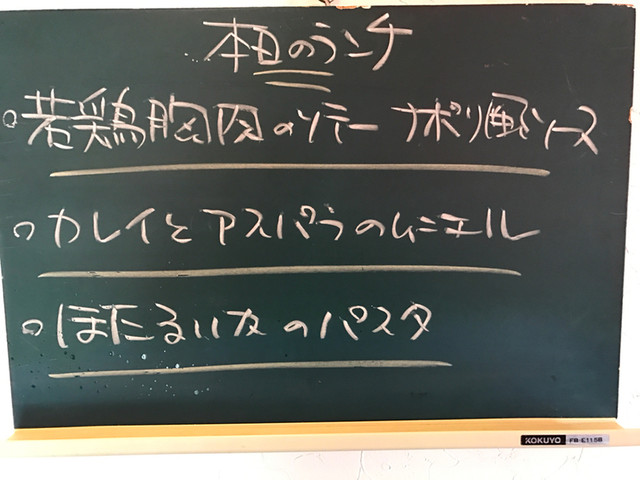 本日のランチ
○若鶏胸肉のソテー ナポリ風ソース
○カレイとアスパラのムニエル
○ほたるいかのパスタ
KOKUYO FB-E115B